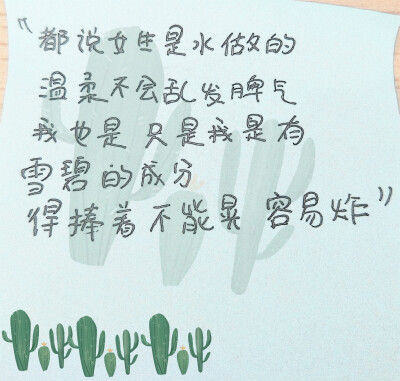 "都说女生是水做的
温柔不会乱发脾气
我也是 只是我是有
雪碧的成分
得捧着不能晃 容易炸"